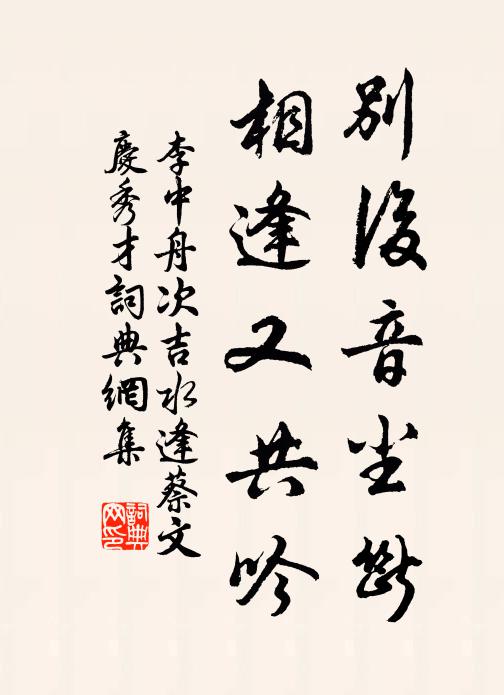 別後音塵斷
相逢又共吟
李中舟次吉水逢蔡文
慶秀才詞典網集
詞典网印